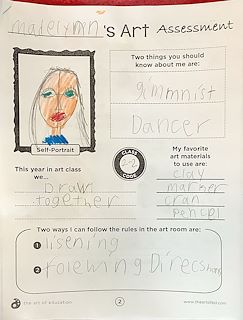 Matelynn's Art Assessment
Two things you should
know about me are:
gimnnist
Dancer
Self-Portrait
This year in art class
we...
Draw
together
CLASS
CODE
My favorite
art materials
to use are:
clay
marker
cran
pencel
Two ways I can follow the rules in the art room are:
1 lisening
2 folewing Direcshons
the art of education
2
www.theartofed.com